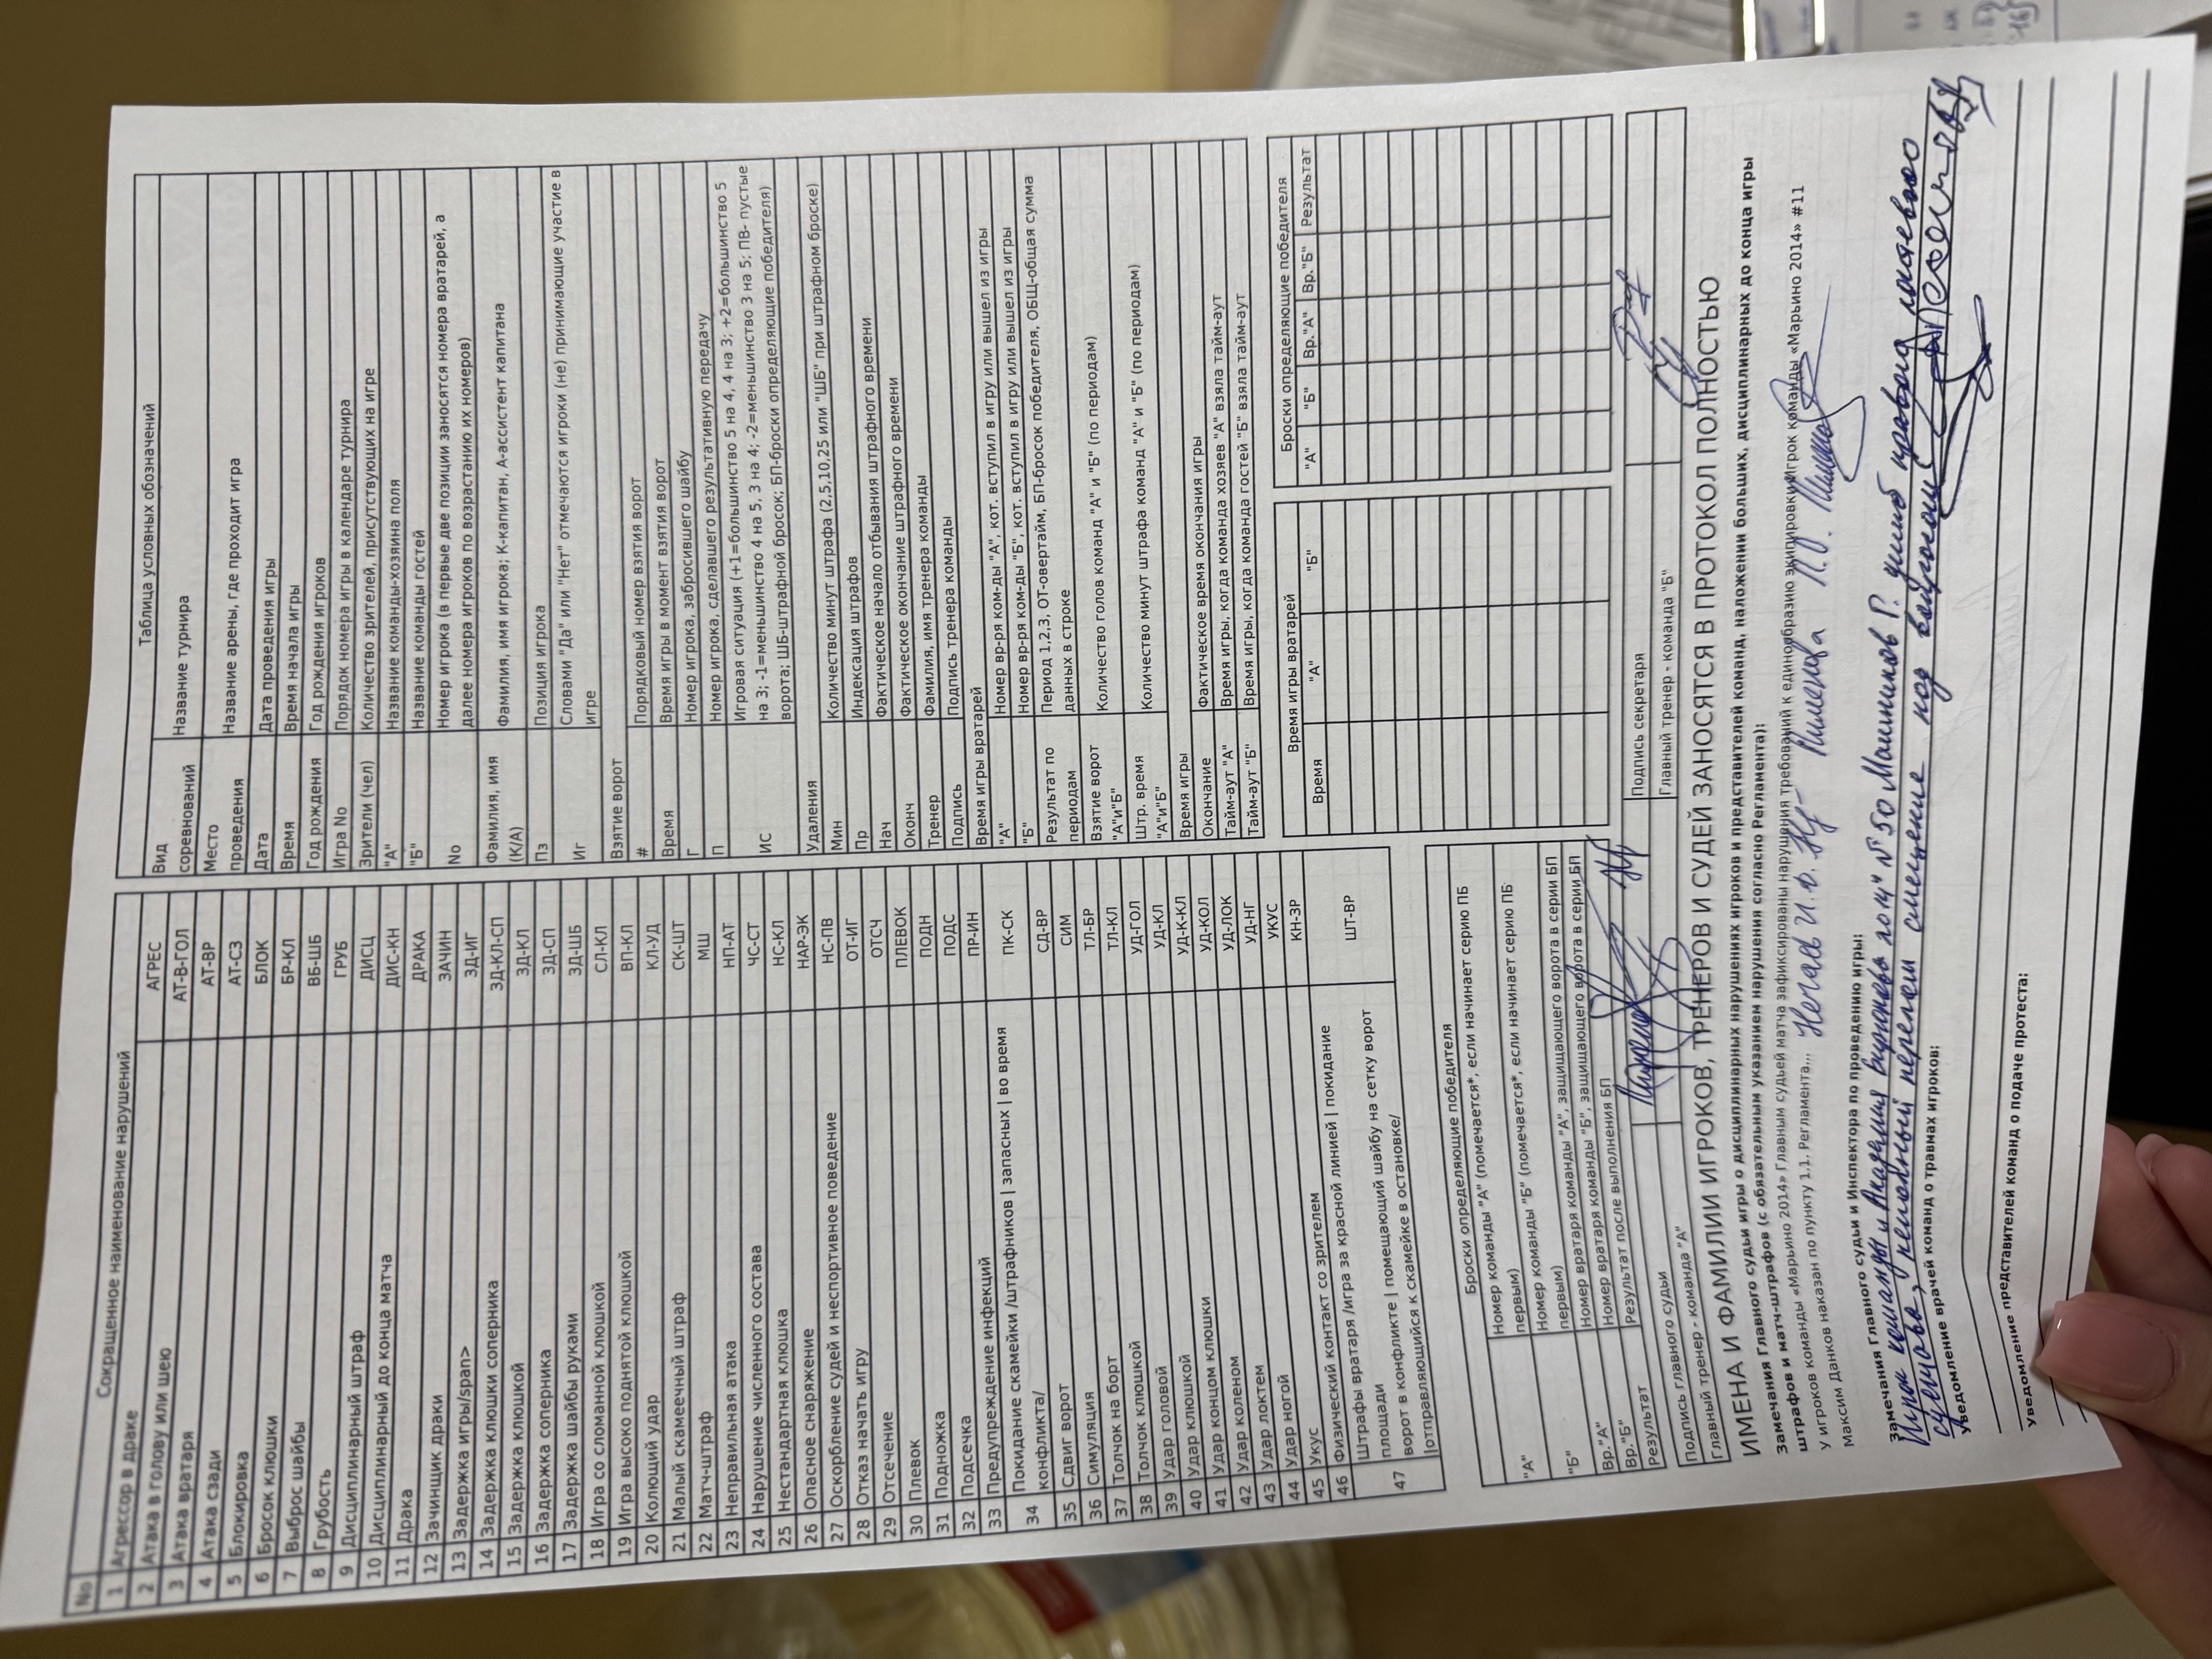 Сокращенное наименование нарушений
No
1 Агрессор в драке АГРЕС
2 Атака в голову или шею АТ-В-ГОЛ
3 Атака вратаря АТ-ВР
4 Атака сзади АТ-СЗ
5 Блокировка БЛОК
6 Бросок клюшки БР-КЛ
7 Выброс шайбы ВБ-ШБ
8 Грубость ГРУБ
9 Дисциплинарный штраф ДИСЦ
10 Дисциплинарный до конца матча ДИС-КН
11 Драка ДРАКА
12 Зачинщик драки ЗАЧИН
13 Задержка игры/span> ЗД-ИГ
14 Задержка клюшки соперника ЗД-КЛ-СП
15 Задержка клюшкой ЗД-КЛ
16 Задержка соперника ЗД-СП
17 Задержка шайбы руками ЗД-ШБ
18 Игра со сломанной клюшкой СЛ-КЛ
19 Игра высоко поднятой клюшкой ВП-КЛ
20 Колющий удар КЛ-УД
21 Малый скамеечный штраф СК-ШТ
22 Матч-штраф МШ
23 Неправильная атака НП-АТ
24 Нарушение численного состава ЧС-СТ
25 Нестандартная клюшка НС-КЛ
26 Опасное снаряжение НАР-ЭК
27 Оскорбление судей и неспортивное поведение НС-ПВ
28 Отказ начать игру ОТ-ИГ
29 Отсечение ОТСЧ
30 Плевок ПЛЕВОК
31 Подножка ПОДН
32 Подсечка ПОДС
33 Предупреждение инфекций ПР-ИН
34 Покидание скамейки /штрафников | запасных | во время
конфликта/ ПК-СК
35 Сдвиг ворот СД-ВР
36 Симуляция СИМ
37 Толчок на борт ТЛ-БР
38 Толчок клюшкой ТЛ-КЛ
39 Удар головой УД-ГОЛ
40 Удар клюшкой УД-КЛ
41 Удар концом клюшки УД-К-КЛ
42 Удар коленом УД-КОЛ
43 Удар локтем УД-ЛОК
44 Удар ногой УД-НГ
45 Укус УКУС
46 Физический контакт со зрителем КН-ЗР
47 Штрафы вратаря /игра за красной линией | покидание
площади
ворот в конфликте | помещающий шайбу на сетку ворот
|отправляющийся к скамейке в остановке/ ШТ-ВР
Таблица условных обозначений
Вид
соревнований Название турнира
Место
проведения Название арены, где проходит игра
Дата Дата проведения игры
Время Время начала игры
Год рождения Год рождения игроков
Игра No Порядок номера игры в календаре турнира
Зрители (чел) Количество зрителей, присутствующих на игре
"А" Название команды-хозяина поля
"Б" Название команды гостей
No Номер игрока (в первые две позиции заносятся номера вратарей, а
далее номера игроков по возрастанию их номеров)
Фамилия, имя
(К/А) Фамилия, имя игрока; К-капитан, А-ассистент капитана
Пз Позиция игрока
Иг Словами "Да" или "Нет" отмечаются игроки (не) принимающие участие в
игре
Взятие ворот
# Порядковый номер взятия ворот
Время Время игры в момент взятия ворот
Г Номер игрока, забросившего шайбу
П Номер игрока, сделавшего результативную передачу
ИС Игровая ситуация (+1=большинство 5 на 4, 4 на 3; +2=большинство 5
на 3; -1=меньшинство 4 на 5, 3 на 4; -2=меньшинство 3 на 5; ПВ- пустые
ворота; ШБ-штрафной бросок; БП-броски определяющие победителя)
Удаления
Мин Количество минут штрафа (2,5,10,25 или "ШБ" при штрафном броске)
Пр Индексация штрафов
Нач Фактическое начало отбывания штрафного времени
Оконч Фактическое окончание штрафного времени
Тренер Фамилия, имя тренера команды
Подпись Подпись тренера команды
Время игры вратарей
"А" Номер вр-ря ком-ды "А", кот. вступил в игру или вышел из игры
"Б" Номер вр-ря ком-ды "Б", кот. вступил в игру или вышел из игры
Результат по
периодам Период 1,2,3, ОТ-овертайм, БП-бросок победителя, ОБЩ-общая сумма
данных в строке
Взятие ворот
"А"и"Б" Количество голов команд "А" и "Б" (по периодам)
Штр. время
"А"и"Б" Количество минут штрафа команд "А" и "Б" (по периодам)
Время игры
Окончание Фактическое время окончания игры
Тайм-аут "А" Время игры, когда команда хозяев "А" взяла тайм-аут
Тайм-аут "Б" Время игры, когда команда гостей "Б" взяла тайм-аут
Броски определяющие победителя
"А" Номер команды "А" (помечается*, если начинает серию ПБ
первым)
"Б" Номер команды "Б" (помечается*, если начинает серию ПБ
первым)
Вр."А" Номер вратаря команды "А", защищающего ворота в серии БП
Вр."Б" Номер вратаря команды "Б", защищающего ворота в серии БП
Результат Результат после выполнения БП
Время игры вратарей
Время "А" "Б"
Броски определяющие победителя
"А" "Б" Вр."А" Вр."Б" Результат
Подпись главного судьи
Подпись секретаря
Главный тренер - команда "А"
Главный тренер - команда "Б"
ИМЕНА И ФАМИЛИИ ИГРОКОВ, ТРЕНЕРОВ И СУДЕЙ ЗАНОСЯТСЯ В ПРОТОКОЛ ПОЛНОСТЬЮ
Замечания Главного судьи игры о дисциплинарных нарушениях игроков и представителей команд, наложении больших, дисциплинарных до конца игры
штрафов и матч-штрафов (с обязательным указанием нарушения согласно Регламента):
У игроков команды «Марьино 2014» Главным судьей матча зафиксированы нарушения требований к единобразию экипировки Игрок команды «Марьино 2014» #11
Максим Данков наказан по пункту 1.1. Регламента...
Замечания Главного судьи и Инспектора по проведению игры:
Игрок команды № 50 ушиб
перелом смещение под вопросом
Уведомление врачей команд о травмах игроков:
Уведомление представителей команд о подаче протеста: